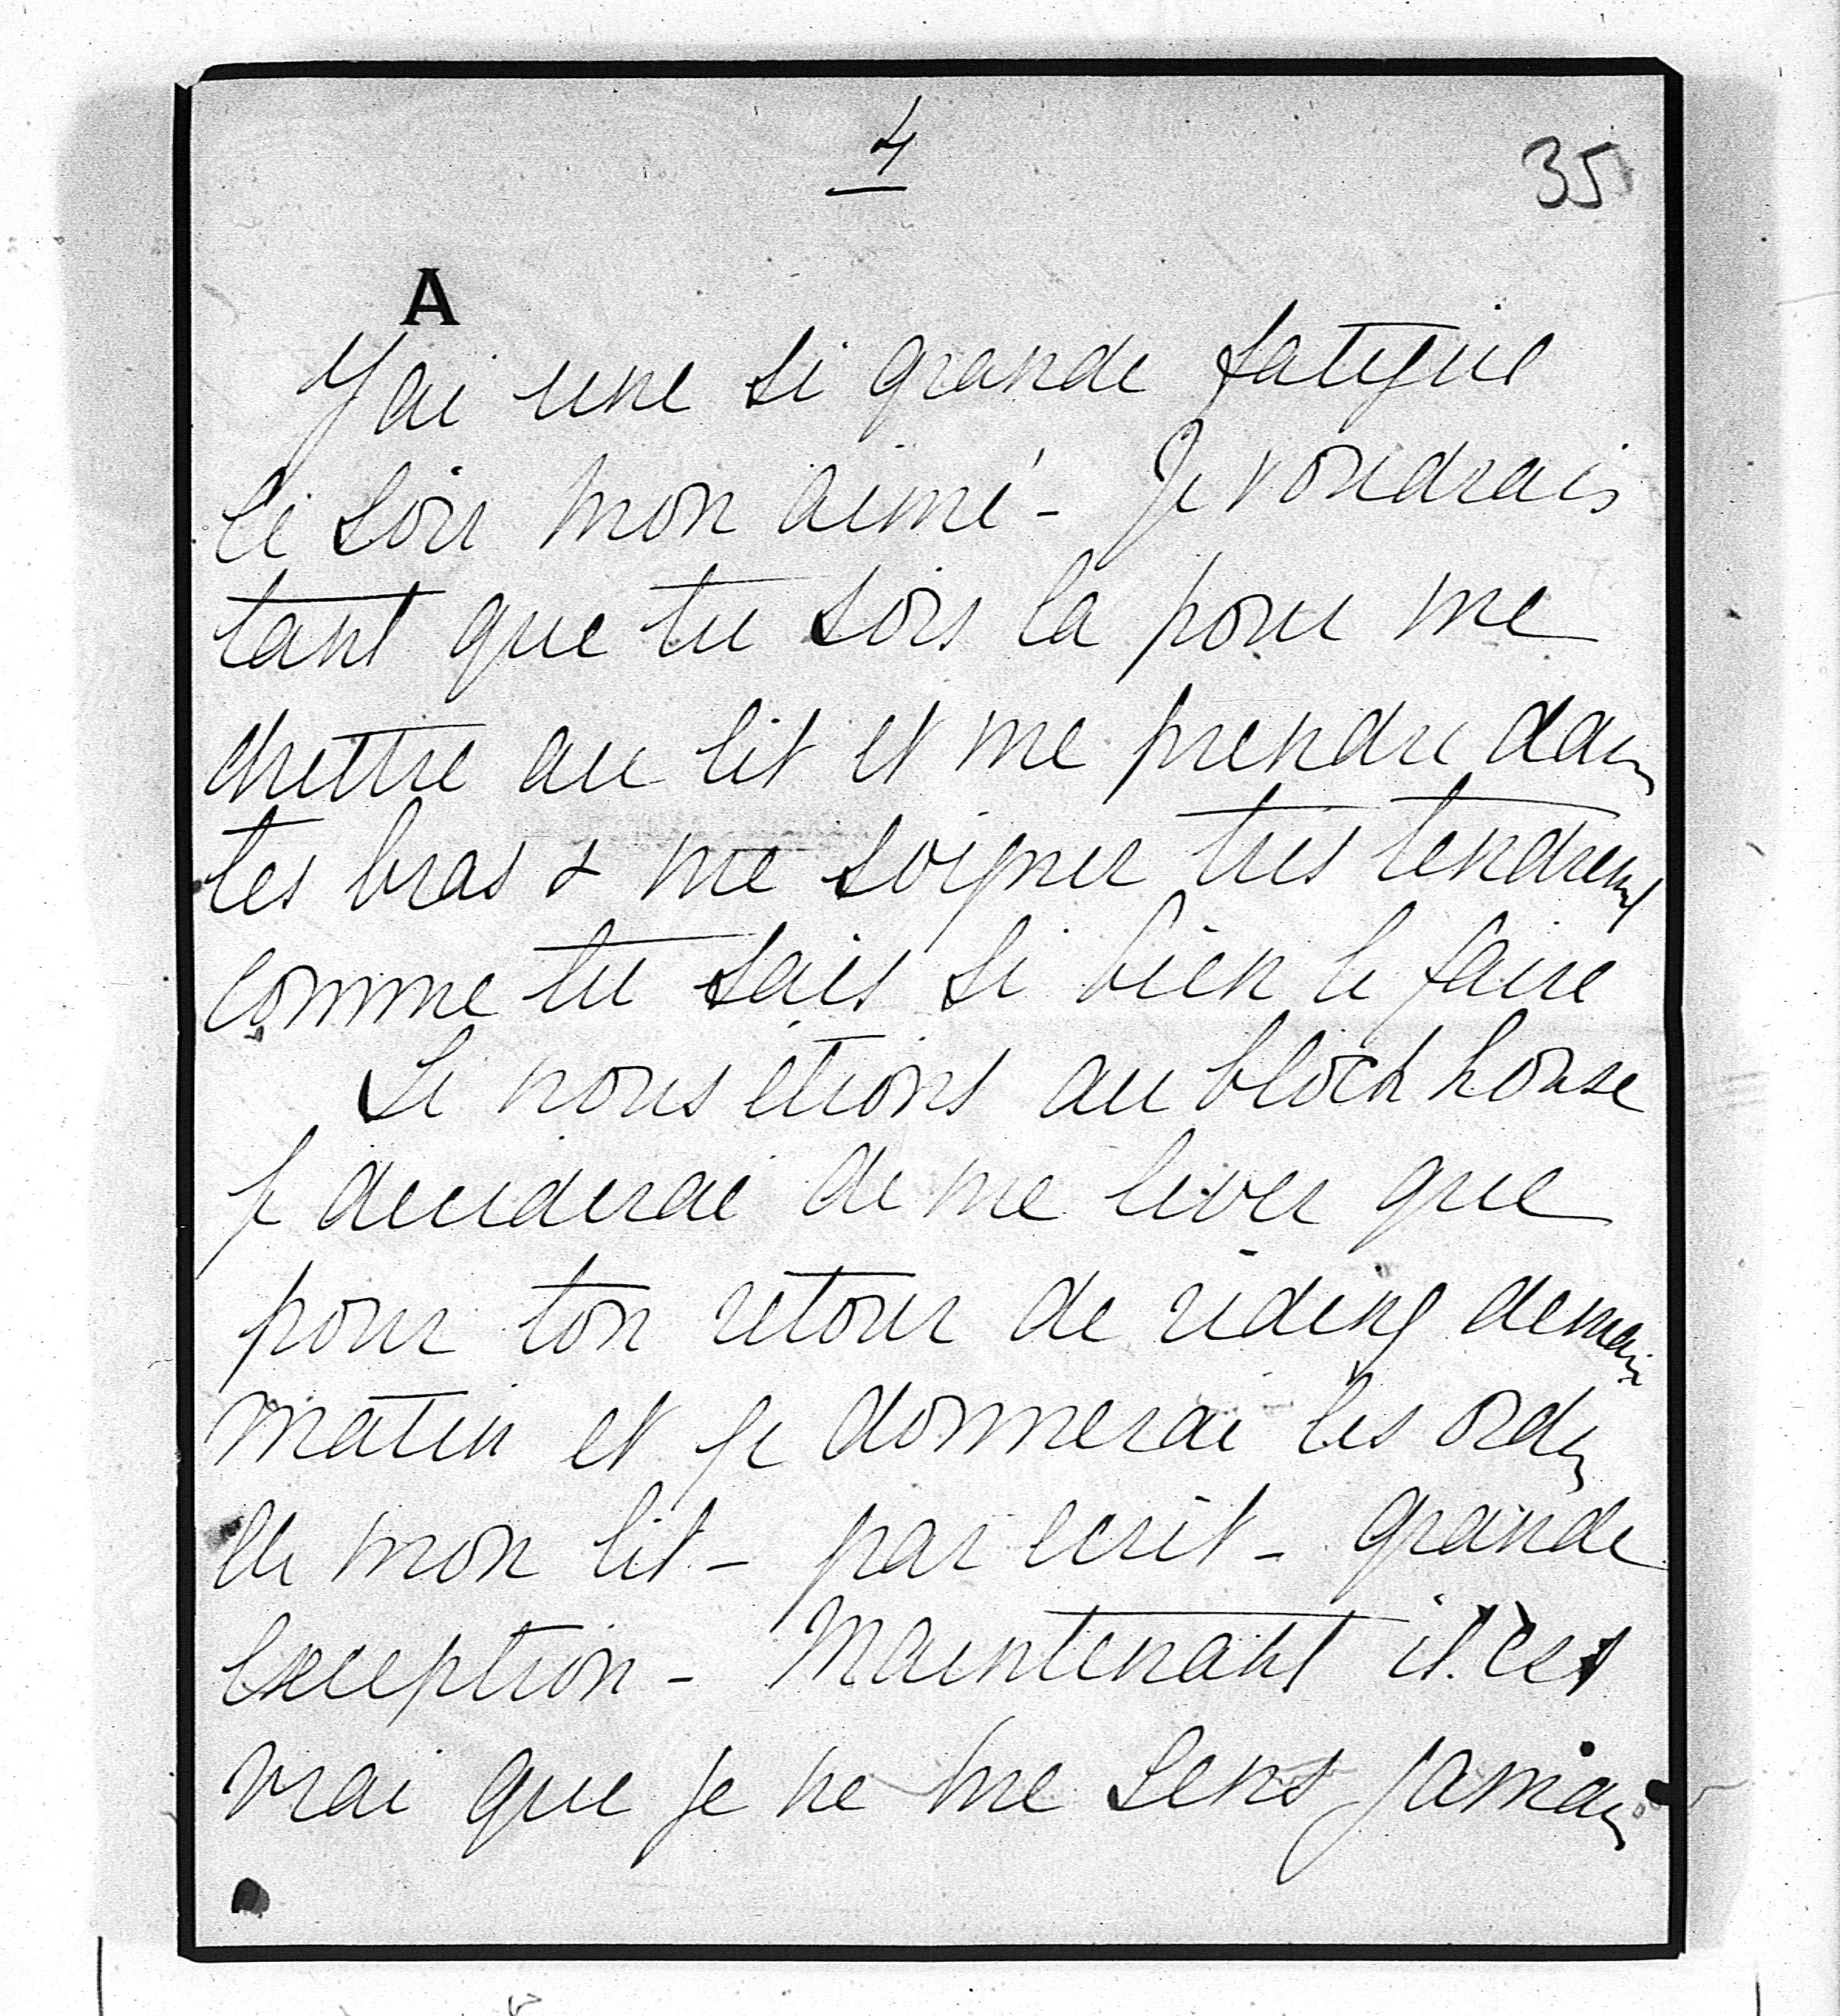 4
35
A
J'ai une si grande fatigue
ce soir mon aimé - Je voudrais
tant que tu sois la pour me
mettre au lit et me prendre dans
tes bras & me soigner tres tendremt
comme tu sais si bien le faire
Si nous etions au block house
je deciderai de me lever que
pour ton retour de riding demain
matin et je donnerai les ordres
de mon lit - par ecrit - grande
exception - Maintenant il est
vrai que je ne me sens jamais